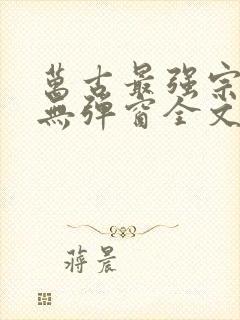 萬古最强宗
無彈窗全文
蔣晨